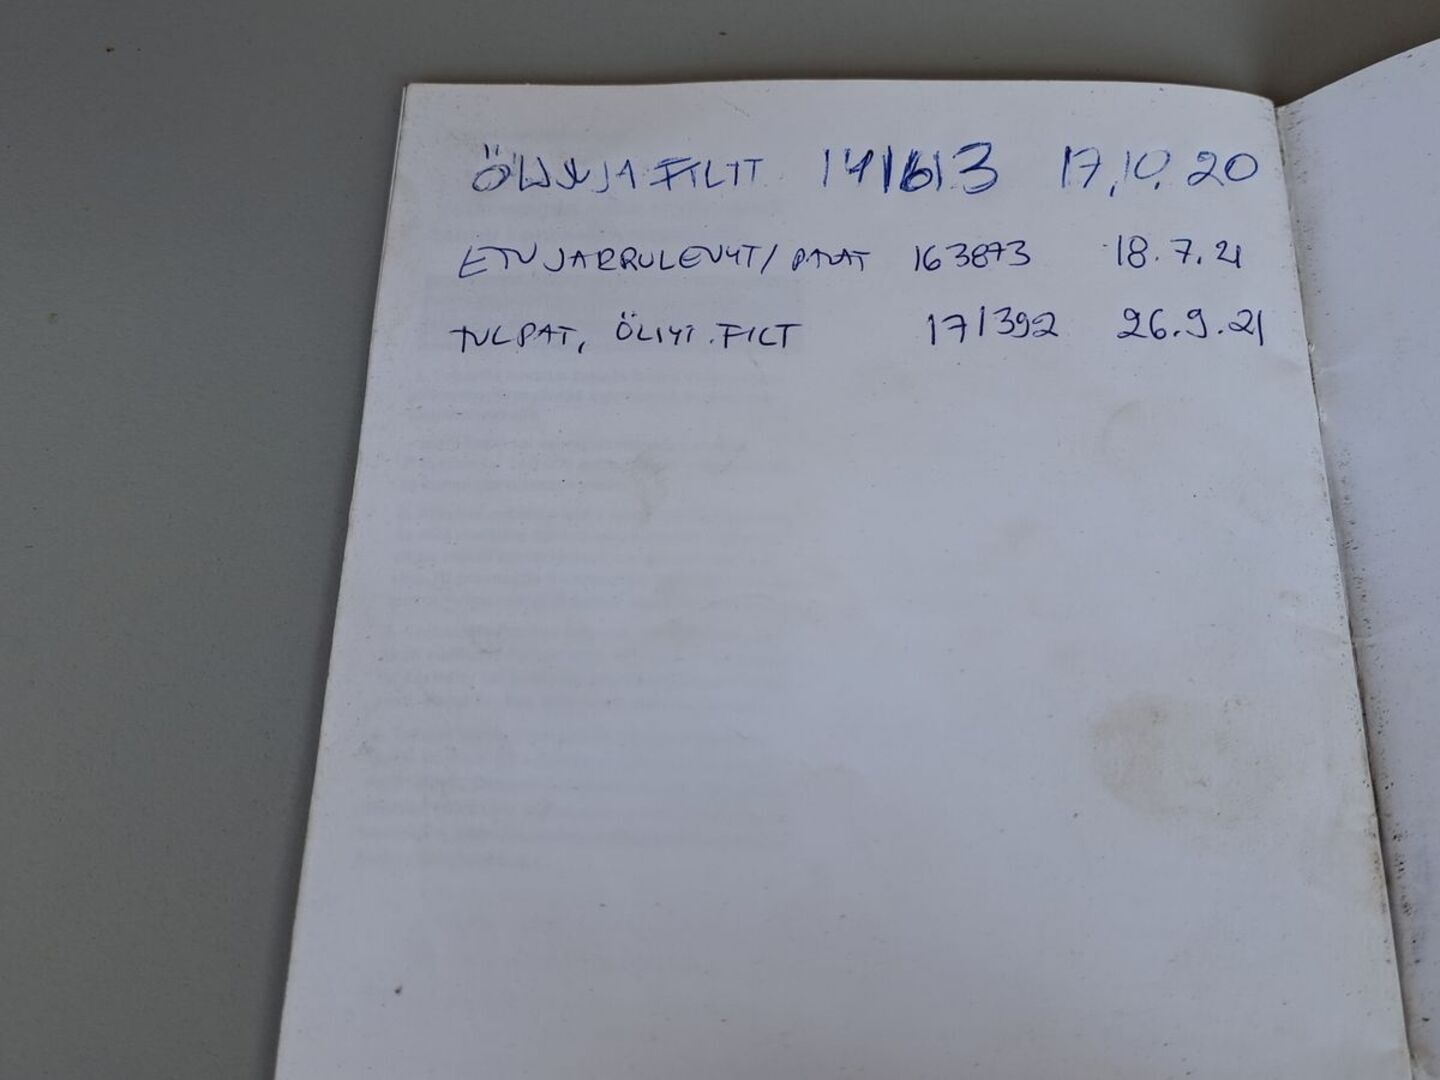 ÖLJY JA FILTT 141613 17.10.20
ETUJARRULEVYT/PALAT 163873 18.7.21
TULPAT, ÖLJYT.FILT 171392 26.9.21